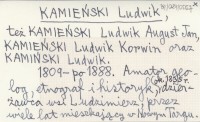 KAMIEŃSKI Ludwik,
też KAMIEŃSKI Ludwik August Jan,
KAMIEŃSKI Ludwik Korwin oraz
KAMIŃSKI Ludwik.
1809- po 1888. Amator geo-
log, etnograf i historyk, dzier-
żawca wsi Ludzimierz, przez
wiele lat mieszkający w Nowym Targu.